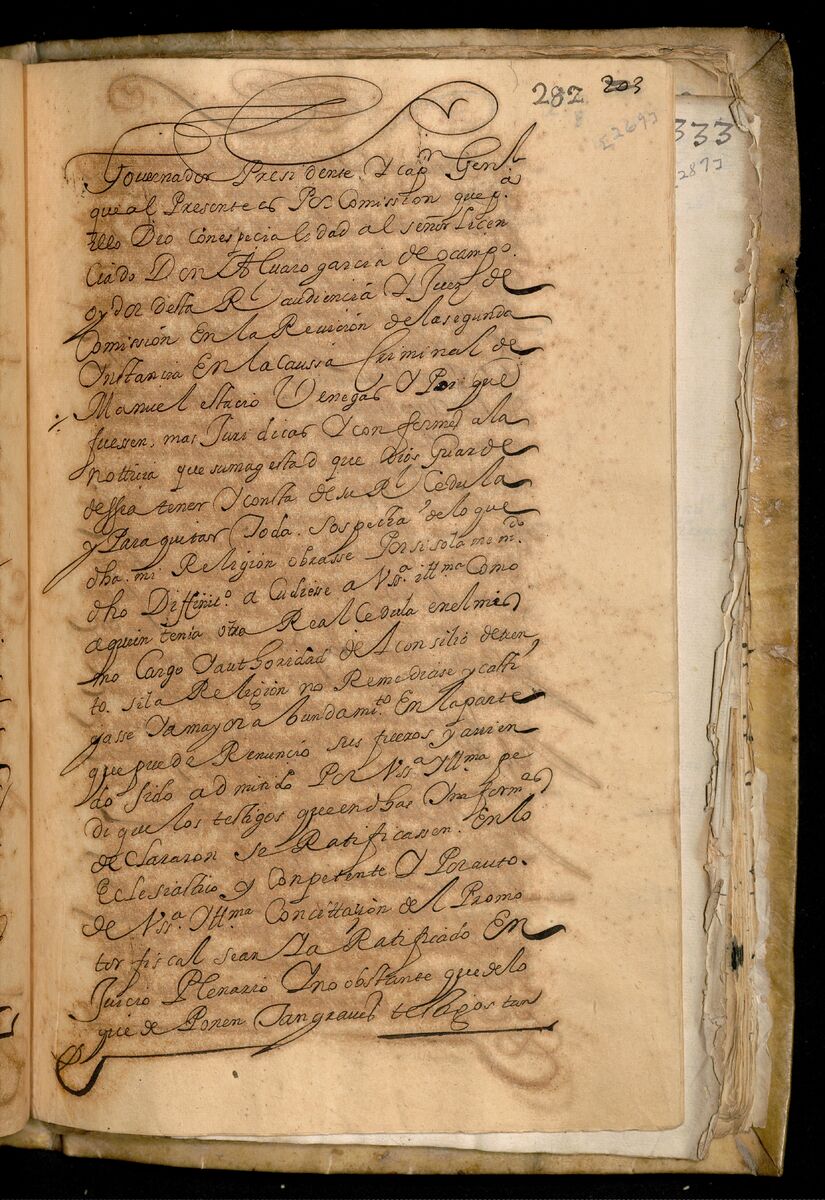 282 203
[269]
333
[287]
Governador Presidente, Y capn Genl
que al Presente es Por Comission que pa
Ello Dio con especialidad al señor Licen
ciado Don Alvaro garcia de ocampo
oydor desta Rl audiencia Y Juez de
Comission En la Reuicion de la segunda
Ynstancia En la Caussa Criminal de
Manuel estacio Venegas Y Por que
fuessen, mas Juridicas Y conformes a la
notticia que su magestad que Dios Guarde
dessea tener Y consta de su Rl Cedula
y Para quitar Toda. Sospecha, de lo que
dha. mi Religion obrasse Por si sola mendo
dho Diffinito. acudiese a Vssa. illma Como
a quien tenia otra Real Cedula en el mis
mo Cargo Y authoridad del Consilio de tren
to. si la Religion no Remediase y casti
gasse Y a mayor abundamito. En la parte
que puede Renuncio sus fueros y avien
do sido admitido Por Vssa. Yllma pe
di que los testigos que en dhas Ynformas
declararon se Ratificassen. En lo
Eclesiastico y Conpetente Y Por auto.
de Vssa. Yllma Con cittazion del Promo
tor fiscal se an Ya Ratificado En
Juicio Plenario Y no obstante que de lo
que de Ponen Tan graves testigos tan